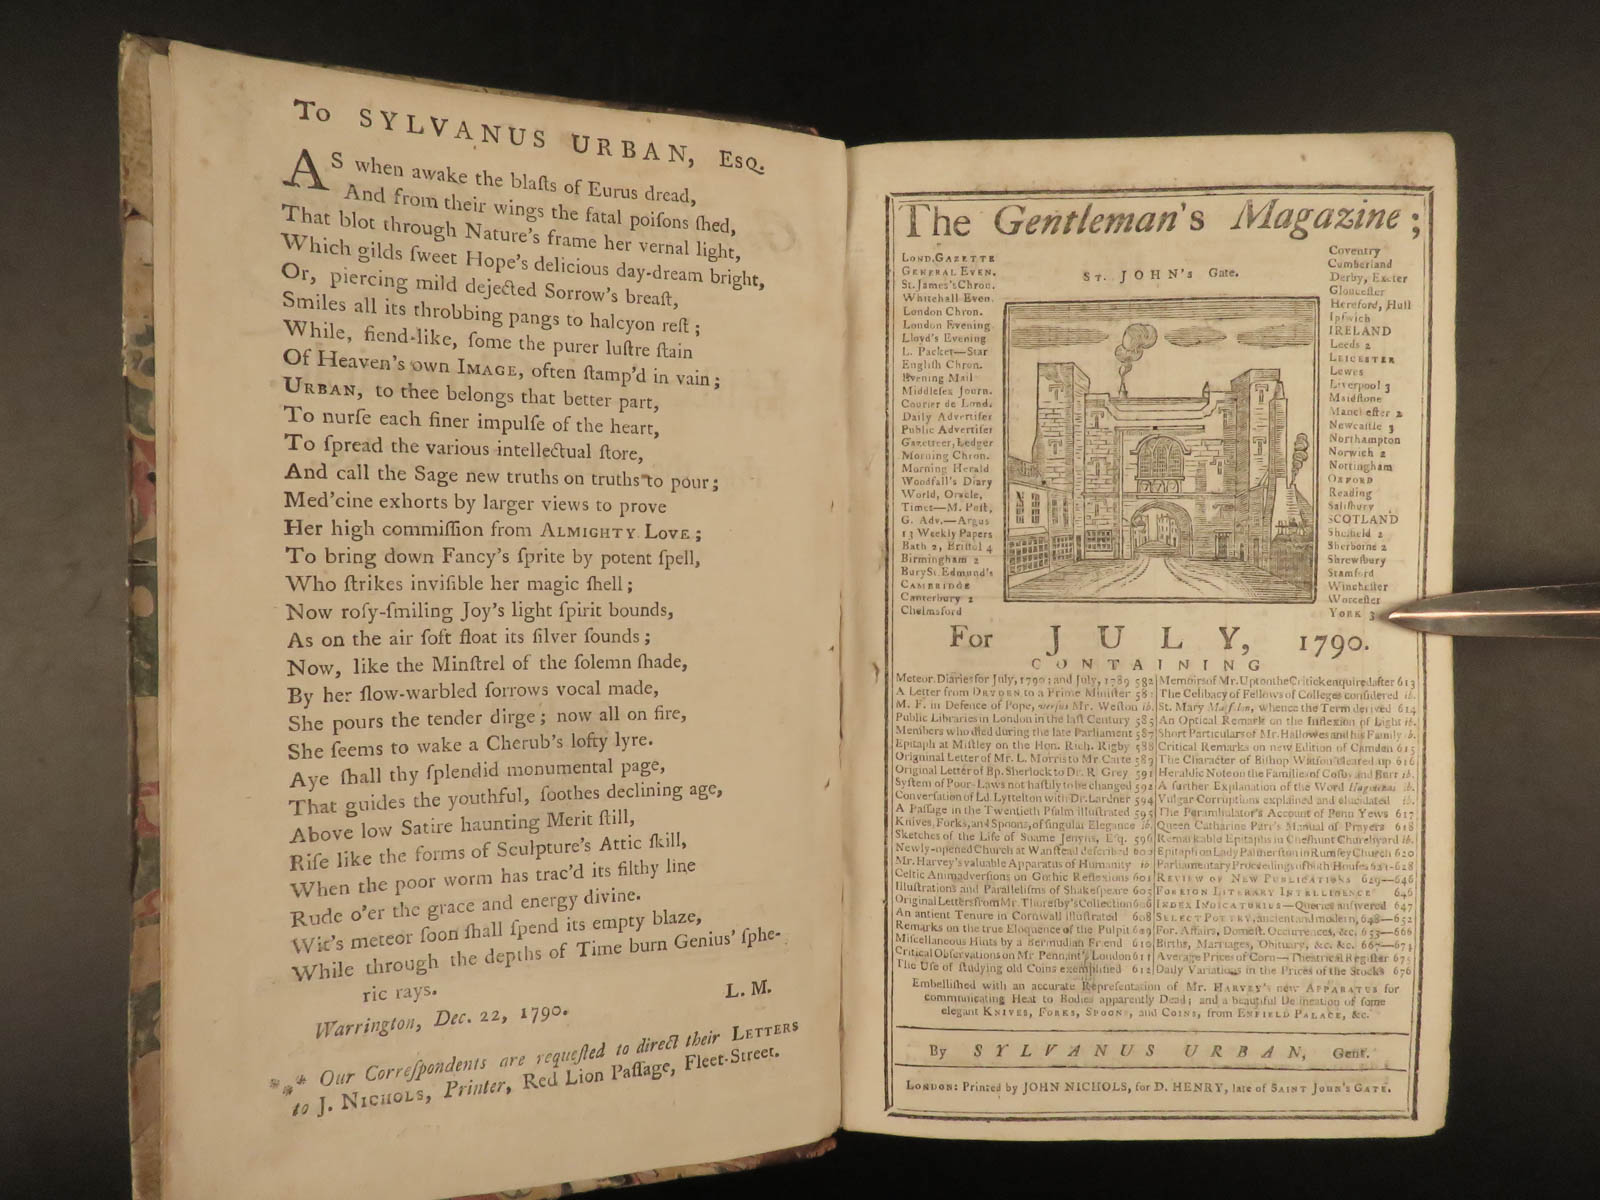 To SYLVANUS URBAN, Esq.
As when awake the blaſts of Eurus dread,
And from their wings the fatal poiſons ſhed,
That blot through Nature's frame her vernal light,
Which gilds ſweet Hope's delicious day-dream bright,
Or, piercing mild dejected Sorrow's breaſt,
Smiles all its throbbing pangs to halcyon reſt;
While, fiend-like, ſome the purer luſtre ſtain
Of Heaven's own IMAGE, often ſtamp'd in vain;
URBAN, to thee belongs that better part,
To nurſe each finer impulſe of the heart,
To ſpread the various intellectual ſtore,
And call the Sage new truths on truths to pour;
Med'cine exhorts by larger views to prove
Her high commiſſion from ALMIGHTY LOVE;
To bring down Fancy's ſprite by potent ſpell,
Who ſtrikes inviſible her magic ſhell;
Now roſy-ſmiling Joy's light ſpirit bounds,
As on the air ſoft float its ſilver ſounds;
Now, like the Minſtrel of the ſolemn ſhade,
By her ſlow-warbled ſorrows vocal made,
She pours the tender dirge; now all on fire,
She ſeems to wake a Cherub's lofty lyre.
Aye ſhall thy ſplendid monumental page,
That guides the youthful, ſoothes declining age,
Above low Satire haunting Merit ſtill,
Riſe like the forms of Sculpture's Attic ſkill,
When the poor worm has trac'd its filthy line
Rude o'er the grace and energy divine.
Wit's meteor ſoon ſhall ſpend its empty blaze,
While through the depths of Time burn Genius' ſphe-
ric rays.
L. M.
Warrington, Dec. 22, 1790.
*** Our Correſpondents are requeſted to direct their LETTERS
to J. NICHOLS, Printer, Red Lion Paſſage, Fleet-Street.
The Gentleman's Magazine;
LOND. GAZETTE
GENERAL EVEN.
St. James's Chron.
Whitehall Even.
London Chron.
London Evening
Lloyd's Evening
L. Packet—Star
Engliſh Chron.
Evening Mail
Middleſex Journ.
Courier de Lond.
Daily Advertiſer
Public Advertiſer
Gazetteer, Ledger
Morning Chron.
Morning Herald
Woodfall's Diary
World, Oracle,
Times—M. Poſt,
G. Adv.—Argus
13 Weekly Papers
Bath 2, Briſtol 4
Birmingham 2
Bury St. Edmund's
CAMBRIDGE
Canterbury 2
Chelmsford
ST. JOHN's Gate.
Coventry
Cumberland
Derby, Exeter
Glouceſter
Hereford, Hull
Ipſwich
IRELAND
Leeds 2
LEICESTER
Lewes
Liverpool 3
Maidſtone
Mancheſter 2
Newcaſtle 3
Northampton
Norwich 2
Nottingham
OXFORD
Reading
Saliſbury
SCOTLAND
Sheffield 2
Sherborne 2
Shrewſbury
Stamford
Wincheſter
Worceſter
YORK 3
For JULY, 1790.
CONTAINING
Meteor. Diaries for July, 1790; and July, 1789 582
A Letter from DRYDEN to a Prime Miniſter 583
M. F. in Defence of Pope, verſus Mr. Weſton ib.
Public Libraries in London in the laſt Century 585
Members who died during the late Parliament 587
Epitaph at Miſtley on the Hon. Rich. Rigby 588
Origninal Letter of Mr. L. Morris to Mr Carte 589
Original Letter of Bp. Sherlock to Dr. R Grey 591
Syſtem of Poor-Laws not haſtily to be changed 592
Converſation of Ld. Lyttelton with Dr. Lardner 594
A Paſſage in the Twentieth Pſalm illuſtrated 595
Knives, Forks, and Spoons, of ſingular Elegance ib.
Sketches of the Life of Soame Jenyns, Eſq. 596
Newly-opened Church at Wanſtead deſcribed 600
Mr. Harvey's valuable Apparatus of Humanity ib
Celtic Animadverſions on Gothic Reflexions 601
Illuſtrations and Paralleliſms of Shakeſpeare 605
Original Letters from Mr. Thoreſby's Collection 606
An antient Tenure in Cornwall illuſtrated 608
Remarks on the true Eloquence of the Pulpit 609
Miſcellaneous Hints by a Bermudian Friend 610
Critical Obſervations on Mr Pennant's London 611
The Uſe of ſtudying old Coins exemplified 612
Memoirs of Mr. Upton the Critic enquired after 613
The Celibacy of Fellows of Colleges conſidered ib.
St. Mary, whence the Term derived 614
An Optical Remark on the Inflexion of Light ib.
Short Particulars of Mr. Hallowes and his Family ib.
Critical Remarks on new Edition of Camden 615
The Character of Biſhop Watſon cleared up 616
Heraldic Note on the Families of Coſby and Burr ib.
A further Explanation of the Word ib.
Vulgar Corruptions explained and elucidated ib.
The Perambulator's Account of Penn Yews 617
Queen Catharine Parr's Manual of Prayers 618
Remarkable Epitaphs in Cheſhunt Churchyard ib.
Epitaph on Lady Palmerſton in Rumſey Church 620
Parliamentary Proceedings of both Houſes 621-628
REVIEW OF NEW PUBLICATIONS 629—646
FOREIGN LITERARY INTELLIGENCE 646
INDEX INDICATORIUS—Queries anſwered 647
SELECT POETRY, ancient and modern, 648—652
For. Affairs, Domeſt. Occurrences, &c. 653—666
Births, Marriages, Obituary, &c. &c. 667—674
Average Prices of Corn—Theatrical Regiſter 675
Daily Variations in the Prices of the Stocks 676
Embelliſhed with an accurate Repreſentation of Mr. HARVEY's new APPARATUS for
communicating Heat to Bodies apparently Dead; and a beautiful Delineation of ſome
elegant KNIVES, FORKS, SPOONS, and COINS, from ENFIELD PALACE, &c.
By SYLVANUS URBAN, Gent.
LONDON: Printed by JOHN NICHOLS, for D. HENRY, late of SAINT JOHN'S GATE.